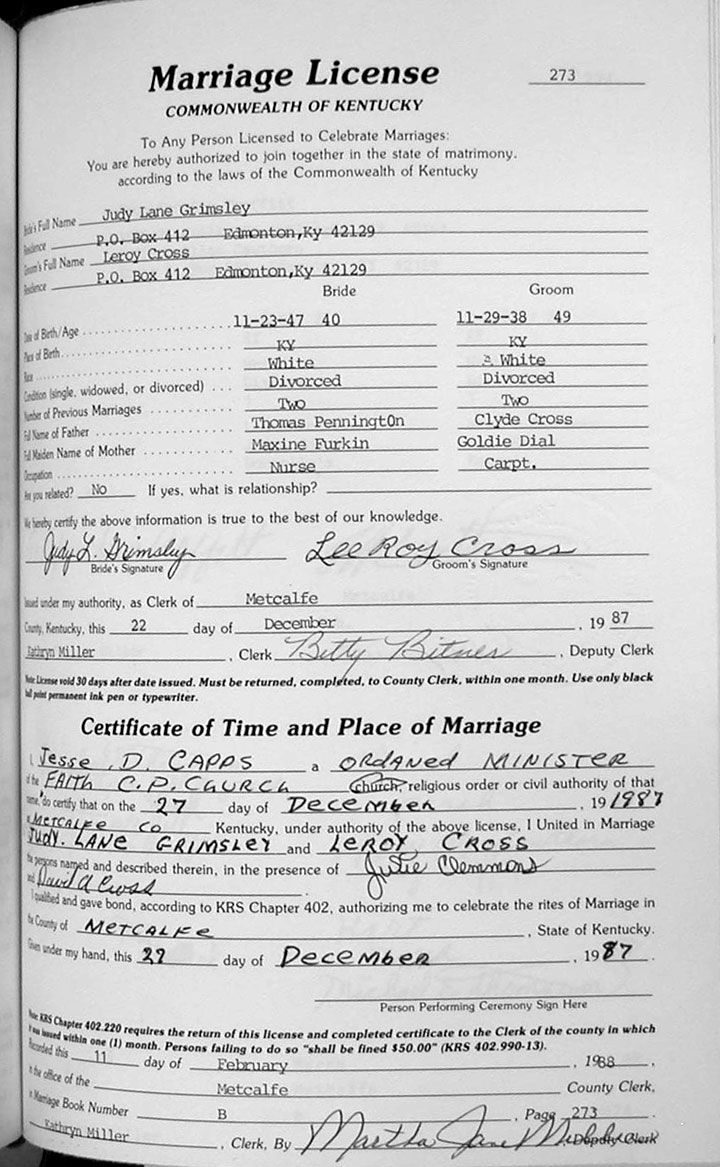 Marriage License
273
COMMONWEALTH OF KENTUCKY
To Any Person Licensed to Celebrate Marriages:
You are hereby authorized to join together in the state of matrimony,
according to the laws of the Commonwealth of Kentucky
Bride's Full Name Judy Lane Grimsley
Residence P.O. Box 412 Edmonton,Ky 42129
Groom's Full Name Leroy Cross
Residence P.O. Box 412 Edmonton,Ky 42129
Bride Groom
Date of Birth/Age 11-23-47 40 11-29-38 49
Place of Birth KY KY
Race White White
Condition (single, widowed, or divorced) Divorced Divorced
Number of Previous Marriages Two Two
Full Name of Father Thomas Penningt0n Clyde Cross
Full Maiden Name of Mother Maxine Furkin Goldie Dial
Occupation Nurse Carpt.
Are you related? No If yes, what is relationship?
We hereby certify the above information is true to the best of our knowledge.
Judy L. Grimsley LeeRoy Cross
Bride's Signature Groom's Signature
Issued under my authority, as Clerk of Metcalfe
County, Kentucky, this 22 day of December, 19 87
Kathryn Miller, Clerk Betty Bitner, Deputy Clerk
Note: License void 30 days after date issued. Must be returned, completed, to County Clerk, within one month. Use only black
ball point permanent ink pen or typewriter.
Certificate of Time and Place of Marriage
I, Jesse . D. CAPPS a ORDANED MINISTER
of the FAITH C.P. CAURCH church, religious order or civil authority of that
name, do certify that on the 27 day of December, 19 1987
in METCALFE CO Kentucky, under authority of the above license, I United in Marriage
JUDY. LANE GRIMSLEY and LEROY CROSS
the persons named and described therein, in the presence of Julie Clemmons
and David A Cross.
I qualified and gave bond, according to KRS Chapter 402, authorizing me to celebrate the rites of Marriage in
the County of METCALFE, State of Kentucky.
Given under my hand, this 29 day of December, 19 87.
Person Performing Ceremony Sign Here
Note: KRS Chapter 402.220 requires the return of this license and completed certificate to the Clerk of the county in which
it was issued within one (1) month. Persons failing to do so "shall be fined $50.00" (KRS 402.990-13).
Recorded this 11 day of February, 1988,
in the office of the Metcalfe County Clerk,
in Marriage Book Number B, Page 273.
Kathryn Miller, Clerk, By Martha Jane Deputy Clerk